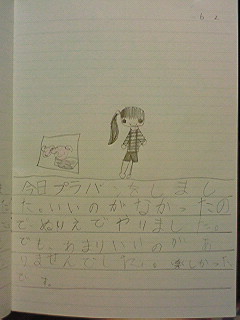 6. 2
今日プラバンをしまし
た。いいのがなかったの
でぬりえでやりました。
でも、あまりいいのがあ
りませんでした。楽しかった
です。